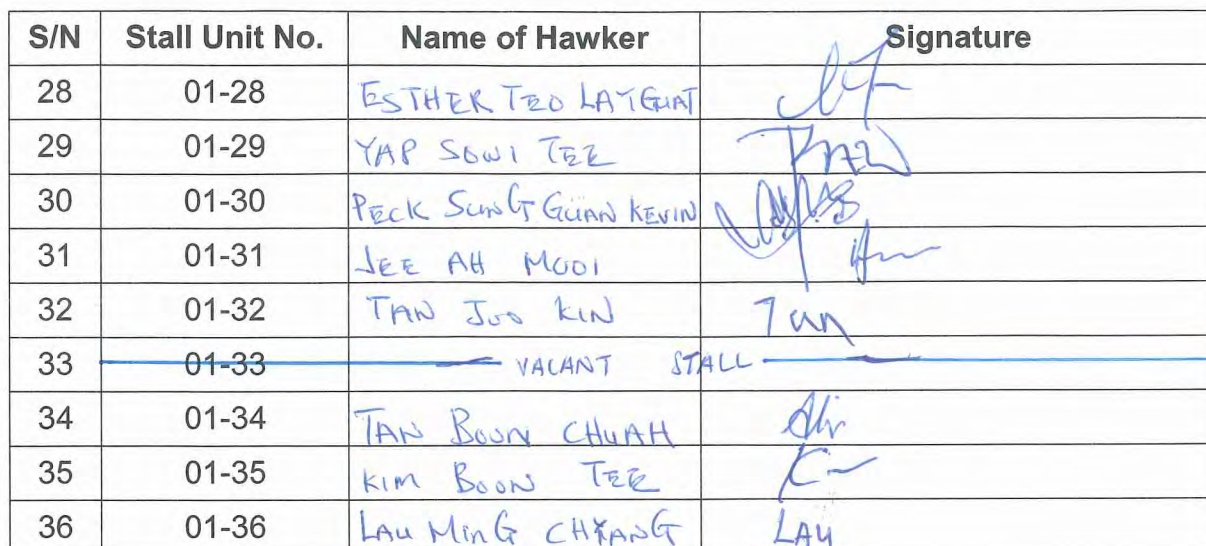 S/N Stall Unit No. Name of Hawker Signature
28 01-28 ESTHER TEO LAY GUAT
29 01-29 YAP SOWI TEE
30 01-30 PECK SUNG GUAN KEVIN
31 01-31 JEE AH MOOI
32 01-32 TAN JOO KIN Tan
33 01-33 VACANT STALL
34 01-34 TAN BOON CHUAH
35 01-35 KIM BOON TEE
36 01-36 LAU MING CHYANG LAU